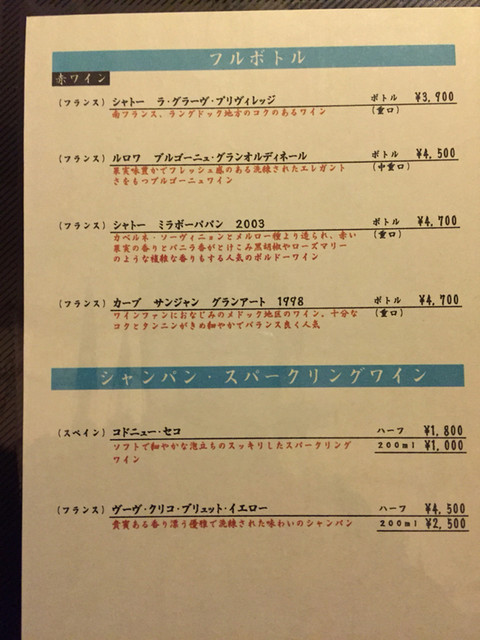 フルボトル
赤ワイン
(フランス) シャトー ラ・グラーヴ・プリヴィレッジ ボトル ¥3,900
南フランス、ラングドック地方のコクのあるワイン (重口)
(フランス) ルロワ ブルゴーニュ・グランオルディネール ボトル ¥4,500
果実味豊かでフレッシュ感のある洗練されたエレガント (中重口)
さをもつブルゴーニュワイン
(フランス) シャトー ミラボーパパン 2003 ボトル ¥4,700
カベルネ・ソーヴィニョンとメルロー種より造られ、赤い (重口)
果実の香りとバニラ香がとけこみ黒胡椒やローズマリー
のような複雑な香りもする人気のボルドーワイン
(フランス) カーブ サンジャン グランアート 1998 ボトル ¥4,700
ワインファンにおなじみのメドック地区のワイン。十分な (重口)
コクとタンニンがきめ細やかでバランス良く人気
シャンパン・スパークリングワイン
(スペイン) コドニュー・セコ ハーフ ¥1,800
ソフトで細やかな泡立ちのスッキリしたスパークリング 200ml ¥1,000
ワイン
(フランス) ヴーヴ・クリコ・ブリュット・イエロー ハーフ ¥4,500
貴賓ある香り漂う優雅で洗練された味わいのシャンパン 200ml ¥2,500